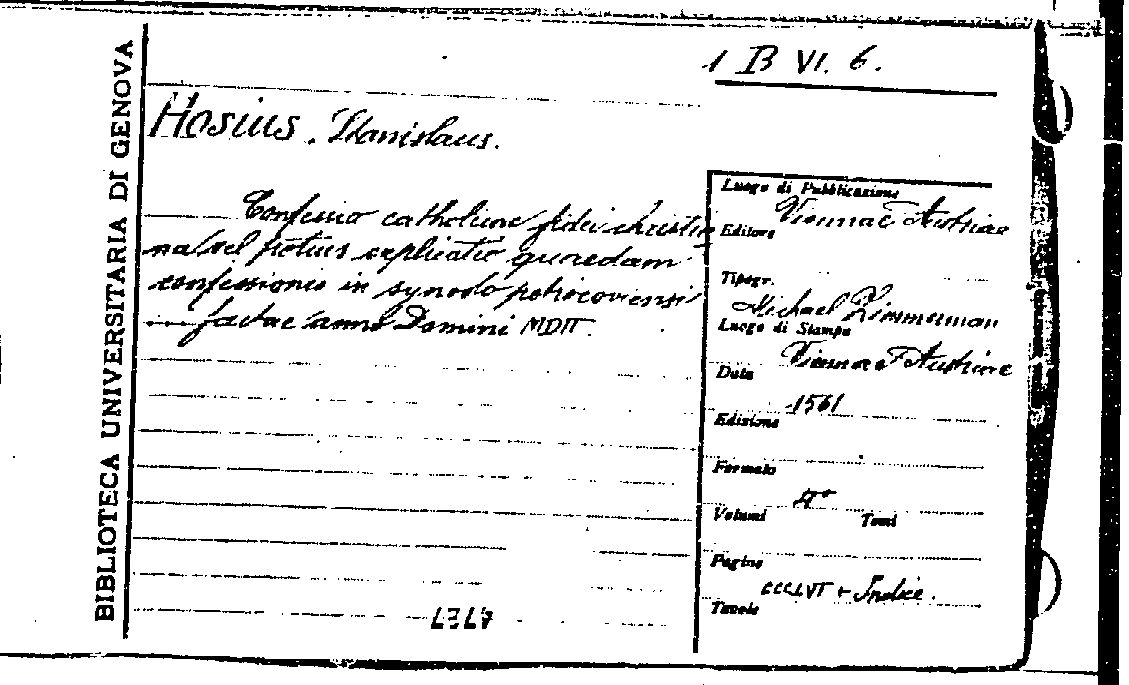 BIBLIOTECA UNIVERSITARIA DI GENOVA
1 B VI. 6.
Hosius. Stanislaus.
Confessio catholicae fidei christia
na vel potius explicatio quaedam
confessionis in synodo petricoviensi
factae anno Domini
Luogo di Pubblicazione
Viennae Austriae
Editore
Tipogr.
Michael Zimmerman
Luogo di Stampa
Viennae Austriae
Data
1561
Edizione
Formato
4°
Volumi Tomi
Pagine
CCCLVI + Indice.
Tavole